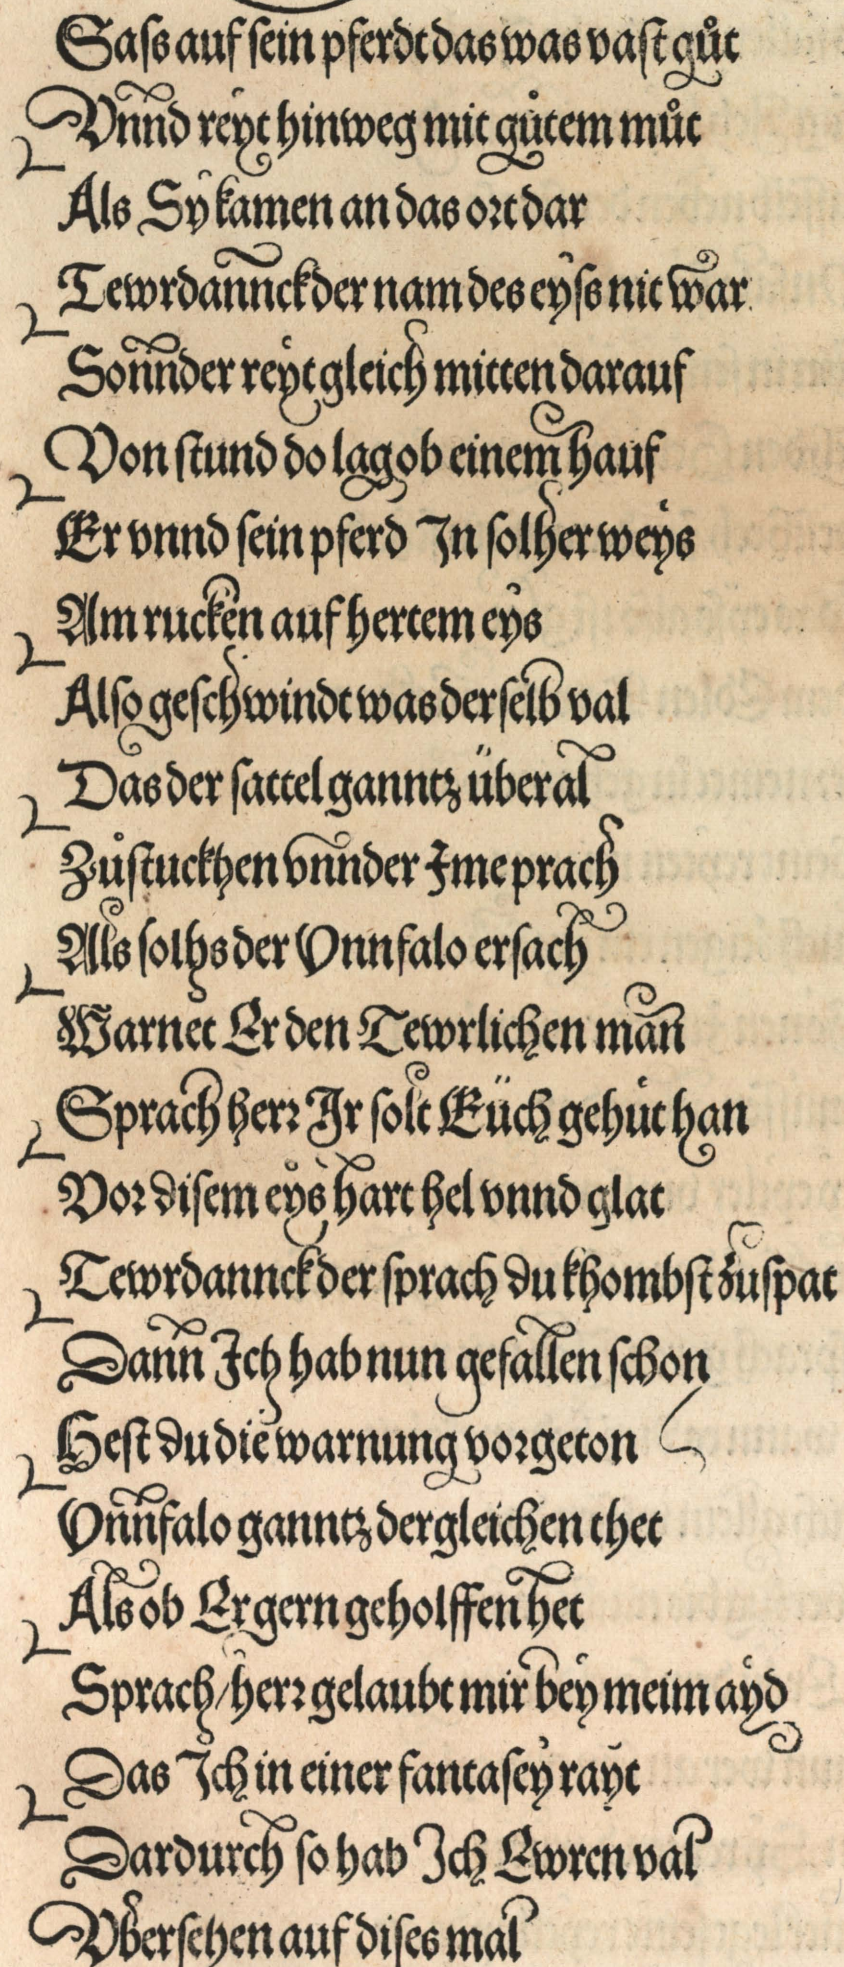 Saſs auf ſein pferdt das was vaſt gůt
Vnnd reÿt hinweg mit gůtem můt
Als Sÿ kamen an das ort dar
Tewrdannck der nam des eÿſs nit war
Sonnder reÿt gleich mitten darauf
Von ſtund do lag ob einem hauf
Er vnnd ſein pferd In ſolher weÿs
Am rucken auf hertem eÿs
Alſo geſchwindt was derſelb val
Das der ſattel ganntz überal
Zůſtuckhen vnnder Ime prach
Als ſolhs der Vnnfalo erſach
Warnet Er den Tewrlichen man
Sprach herr Ir ſolt Eüch gehüt han
Vor diſem eÿs hart hel vnnd glat
Tewrdannck der ſprach du khombſt zuſpat
Dann Ich hab nun gefallen ſchon
Heſt du die warnung vorgeton
Vnnfalo ganntz dergleichen thet
Als ob Er gern geholffen het
Sprach/herr gelaubt mir beÿ meim aÿd
Das Ich in einer fantaſeÿ raÿt
Dardurch ſo hab Ich Ewren val
Vberſehen auf diſes mal